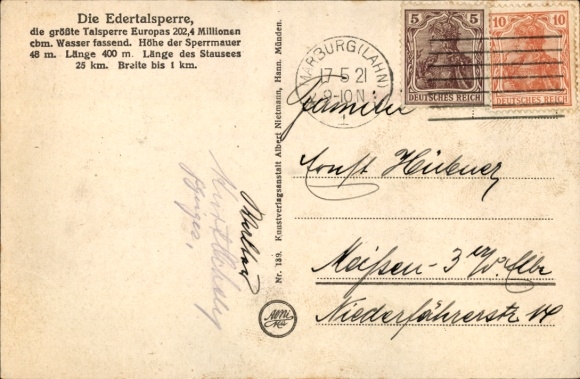 Die Edertalsperre,
die größte Talsperre Europas 202,4 Millionen
cbm. Wasser fassend. Höhe der Sperrmauer
48 m. Länge 400 m. Länge des Stausees
25 km. Breite bis 1 km.
MARBURG (LAHN)
17 5 21
9-10 N
1
5 5
DEUTSCHES REICH
10 10
DEUTSCHES REICH
Familie
Ernst Hübner
Meißen - 3
Niederfährerstr 14
Nr. 139. Kunstverlagsanstalt Albert Nietmann, Hann. Münden.